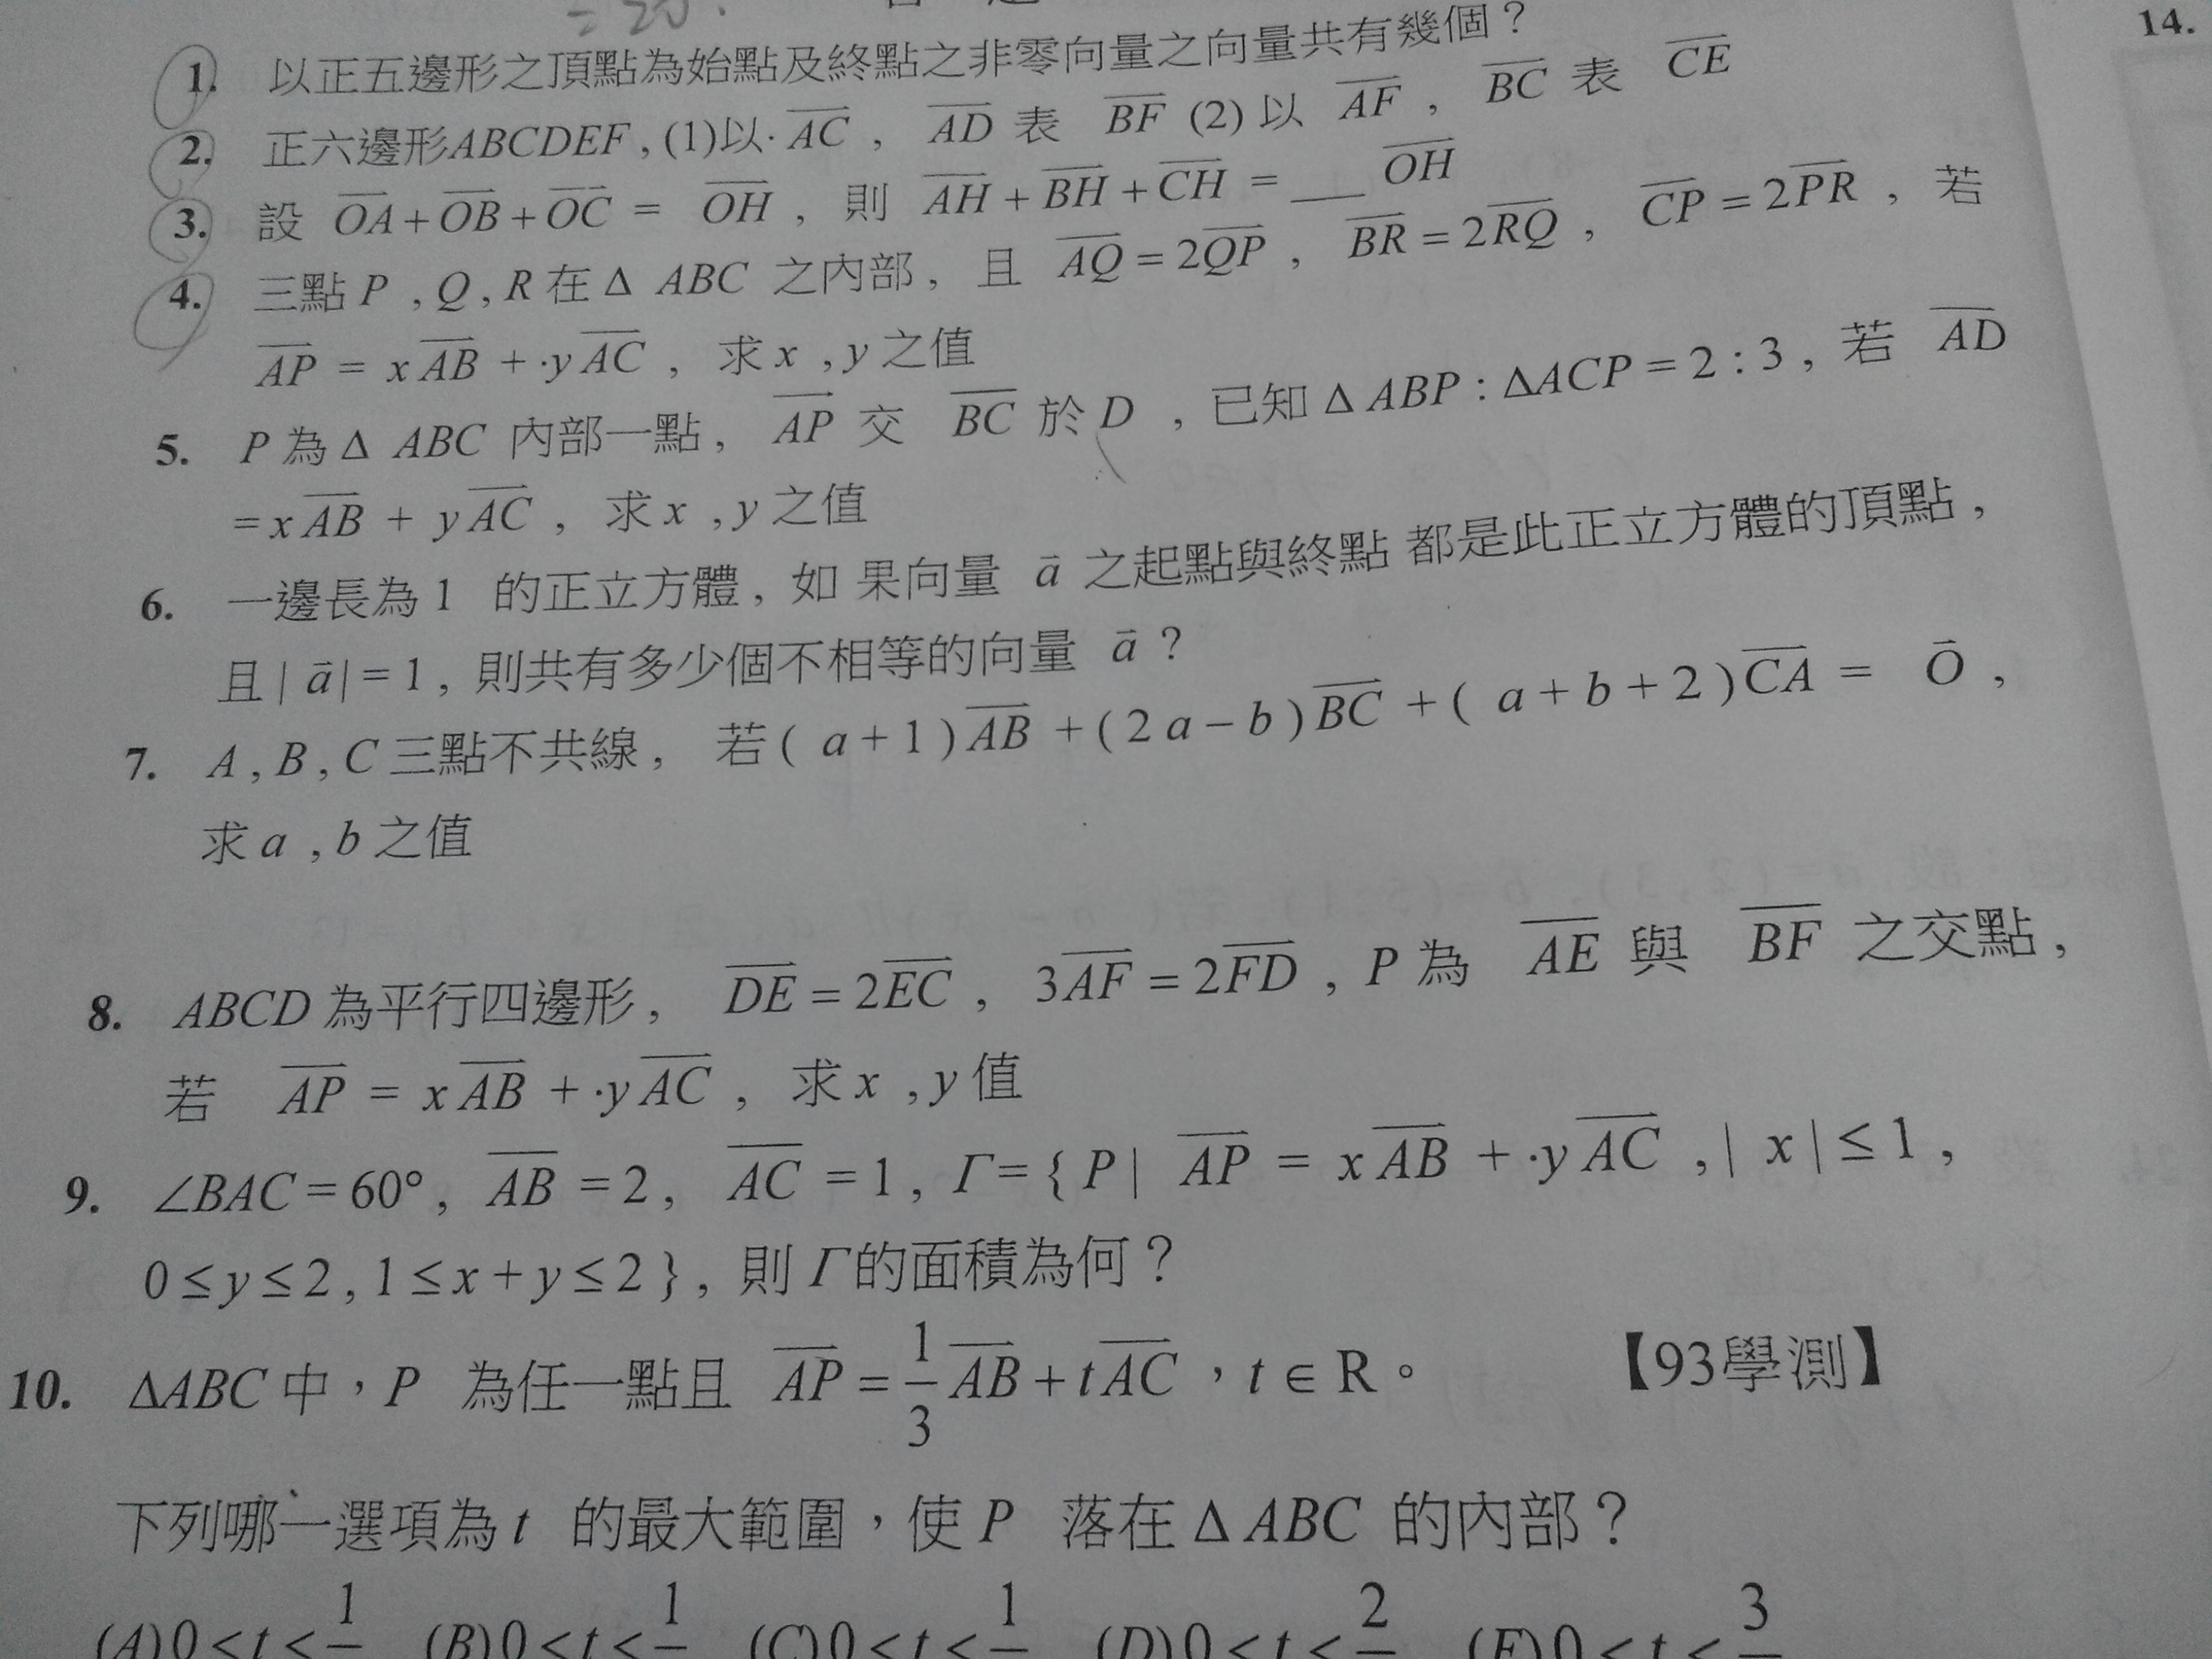 14.
1. 以正五邊形之頂點為始點及終點之非零向量之向量共有幾個？
2. 正六邊形ABCDEF , (1)以· AC , AD 表 BF (2) 以 AF , BC 表 CE
3. 設 OA + OB + OC = OH , 則 AH + BH + CH = __ OH
4. 三點 P , Q , R 在 Δ ABC 之內部 , 且 AQ = 2QP , BR = 2RQ , CP = 2PR , 若
AP = x AB + ·y AC , 求 x , y 之值
5. P 為 Δ ABC 內部一點 , AP 交 BC 於 D , 已知 Δ ABP : ΔACP = 2 : 3 , 若 AD
= x AB + y AC , 求 x , y 之值
6. 一邊長為 1 的正立方體 , 如 果向量 a 之起點與終點 都是此正立方體的頂點 ,
且 | a | = 1 , 則共有多少個不相等的向量 a ?
7. A , B , C 三點不共線 , 若 ( a + 1 ) AB + ( 2 a − b ) BC + ( a + b + 2 ) CA = O ,
求 a , b 之值
8. ABCD 為平行四邊形 , DE = 2EC , 3AF = 2FD , P 為 AE 與 BF 之交點 ,
若 AP = x AB + ·y AC , 求 x , y 值
9. ∠BAC = 60° , AB = 2 , AC = 1 , Γ = { P | AP = x AB + ·y AC , | x | ≤ 1 ,
0 ≤ y ≤ 2 , 1 ≤ x + y ≤ 2 } , 則 Γ 的面積為何？
10. ΔABC 中，P 為任一點且 AP = 1/3 AB + t AC ，t ∈ R。 【93學測】
下列哪一選項為 t 的最大範圍，使 P 落在 Δ ABC 的內部？
(A) 0 < t < 1 (B) 0 < t < 1 (C) 0 < t < 1 (D) 0 < t < 2 (E) 0 < t < 3